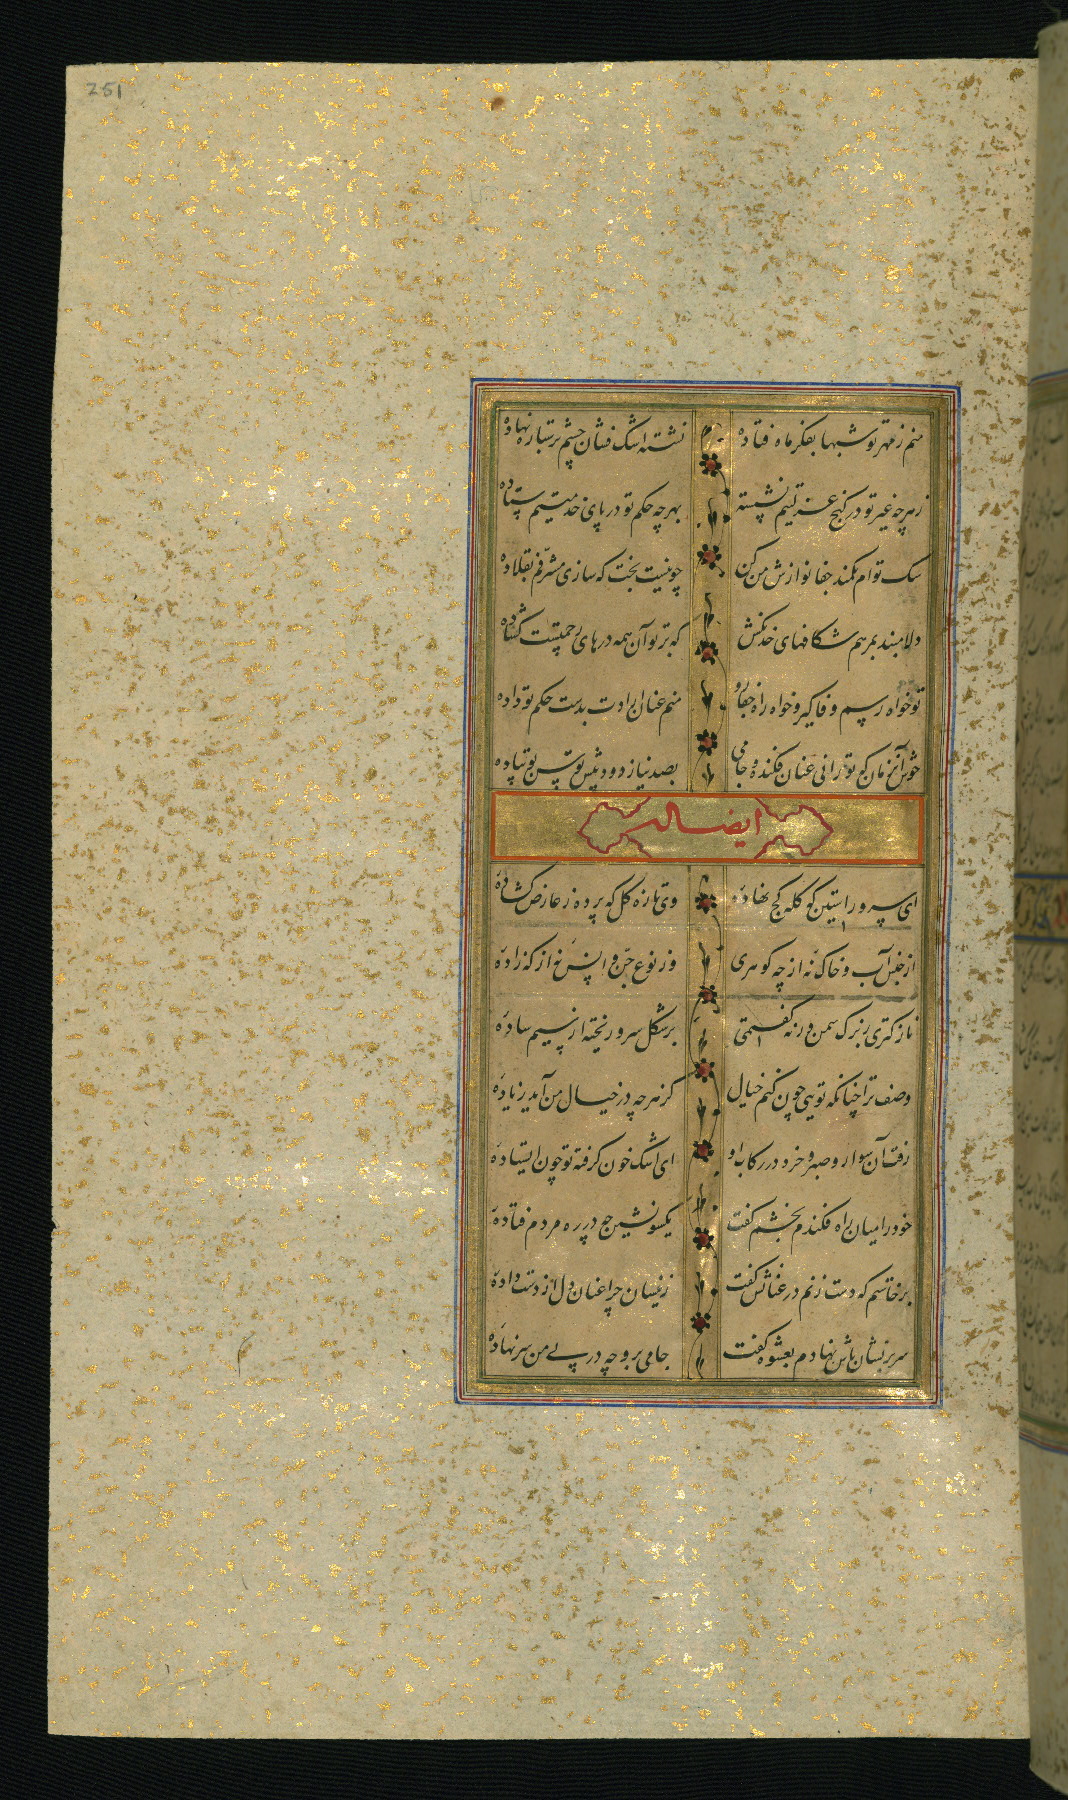 251
منم ز مهر تو شبها بفکر ماه فتاده نشسته اشک فشان چشم بر ستاره نهاده
ز هرچه غیر تو در کنج عزلتیم نشسته بهرچه حکم تو در پای خدمتیم ستاده
سک توام بکمند جفا نوازش من کن چو نیست بخت که سازی مشرفم بقلاده
دلا مبند بمرهم شکافهای خدنکش که بر تو آن همه درهای رحمتست کشاده
تو خواه رسم وفا کیر و خواه راه جفا رو منم عنان ارادت بدست حکم تو داده
خوش آن زمان که تو رانی عنان فکنده و جامی بصد نیاز دود پیش توسن تو پیاده
ایضا له
ای سرو راستین که کله کج نهادهٔ وی تازه کل که پرده ز عارض کشادهٔ
از جنس آب و خاک نهٔ از چه کوهری وز نوع جن و انس نهٔ از که زادهٔ
نازکتری ز برک سمن ورنه کفتمی بر شکل سرو ریخته از سیم سادهٔ
وصف ترا چنانکه تویی چون کنم خیال کز هرچه در خیال من آید زیادهٔ
رفت آن سوار و صبر و خرد در رکاب او ای اشک خون کرفته تو چون ایستادهٔ
خود را میان راه فکندم بخشم کفت یکسو نشین چو در ره مردم فتادهٔ
برخاستم که دست زنم در عنانش کفت زینسان چرا عنان دل از دست دادهٔ
سر بر نشان پاش نهادم بعشوه کفت جامی برو چه در پی من سر نهادهٔ